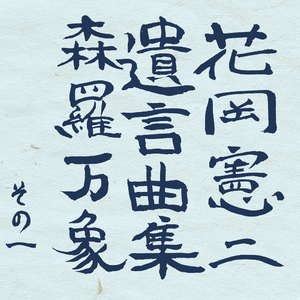 花岡憲二
遺言曲集
森羅万象
その一